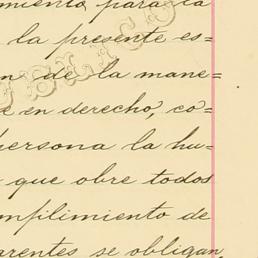 miento, para la
la presente es=
n de la mane=
e en derecho, co=
persona la hu=
que obre todos
mplimiento de
arentes se obligan